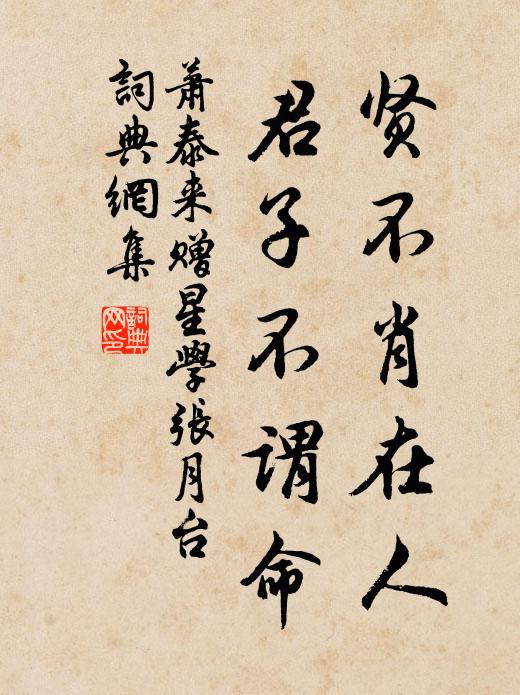 贤不肖在人
君子不谓命
萧泰来赠星学张月台
词典網集
詞典
网印